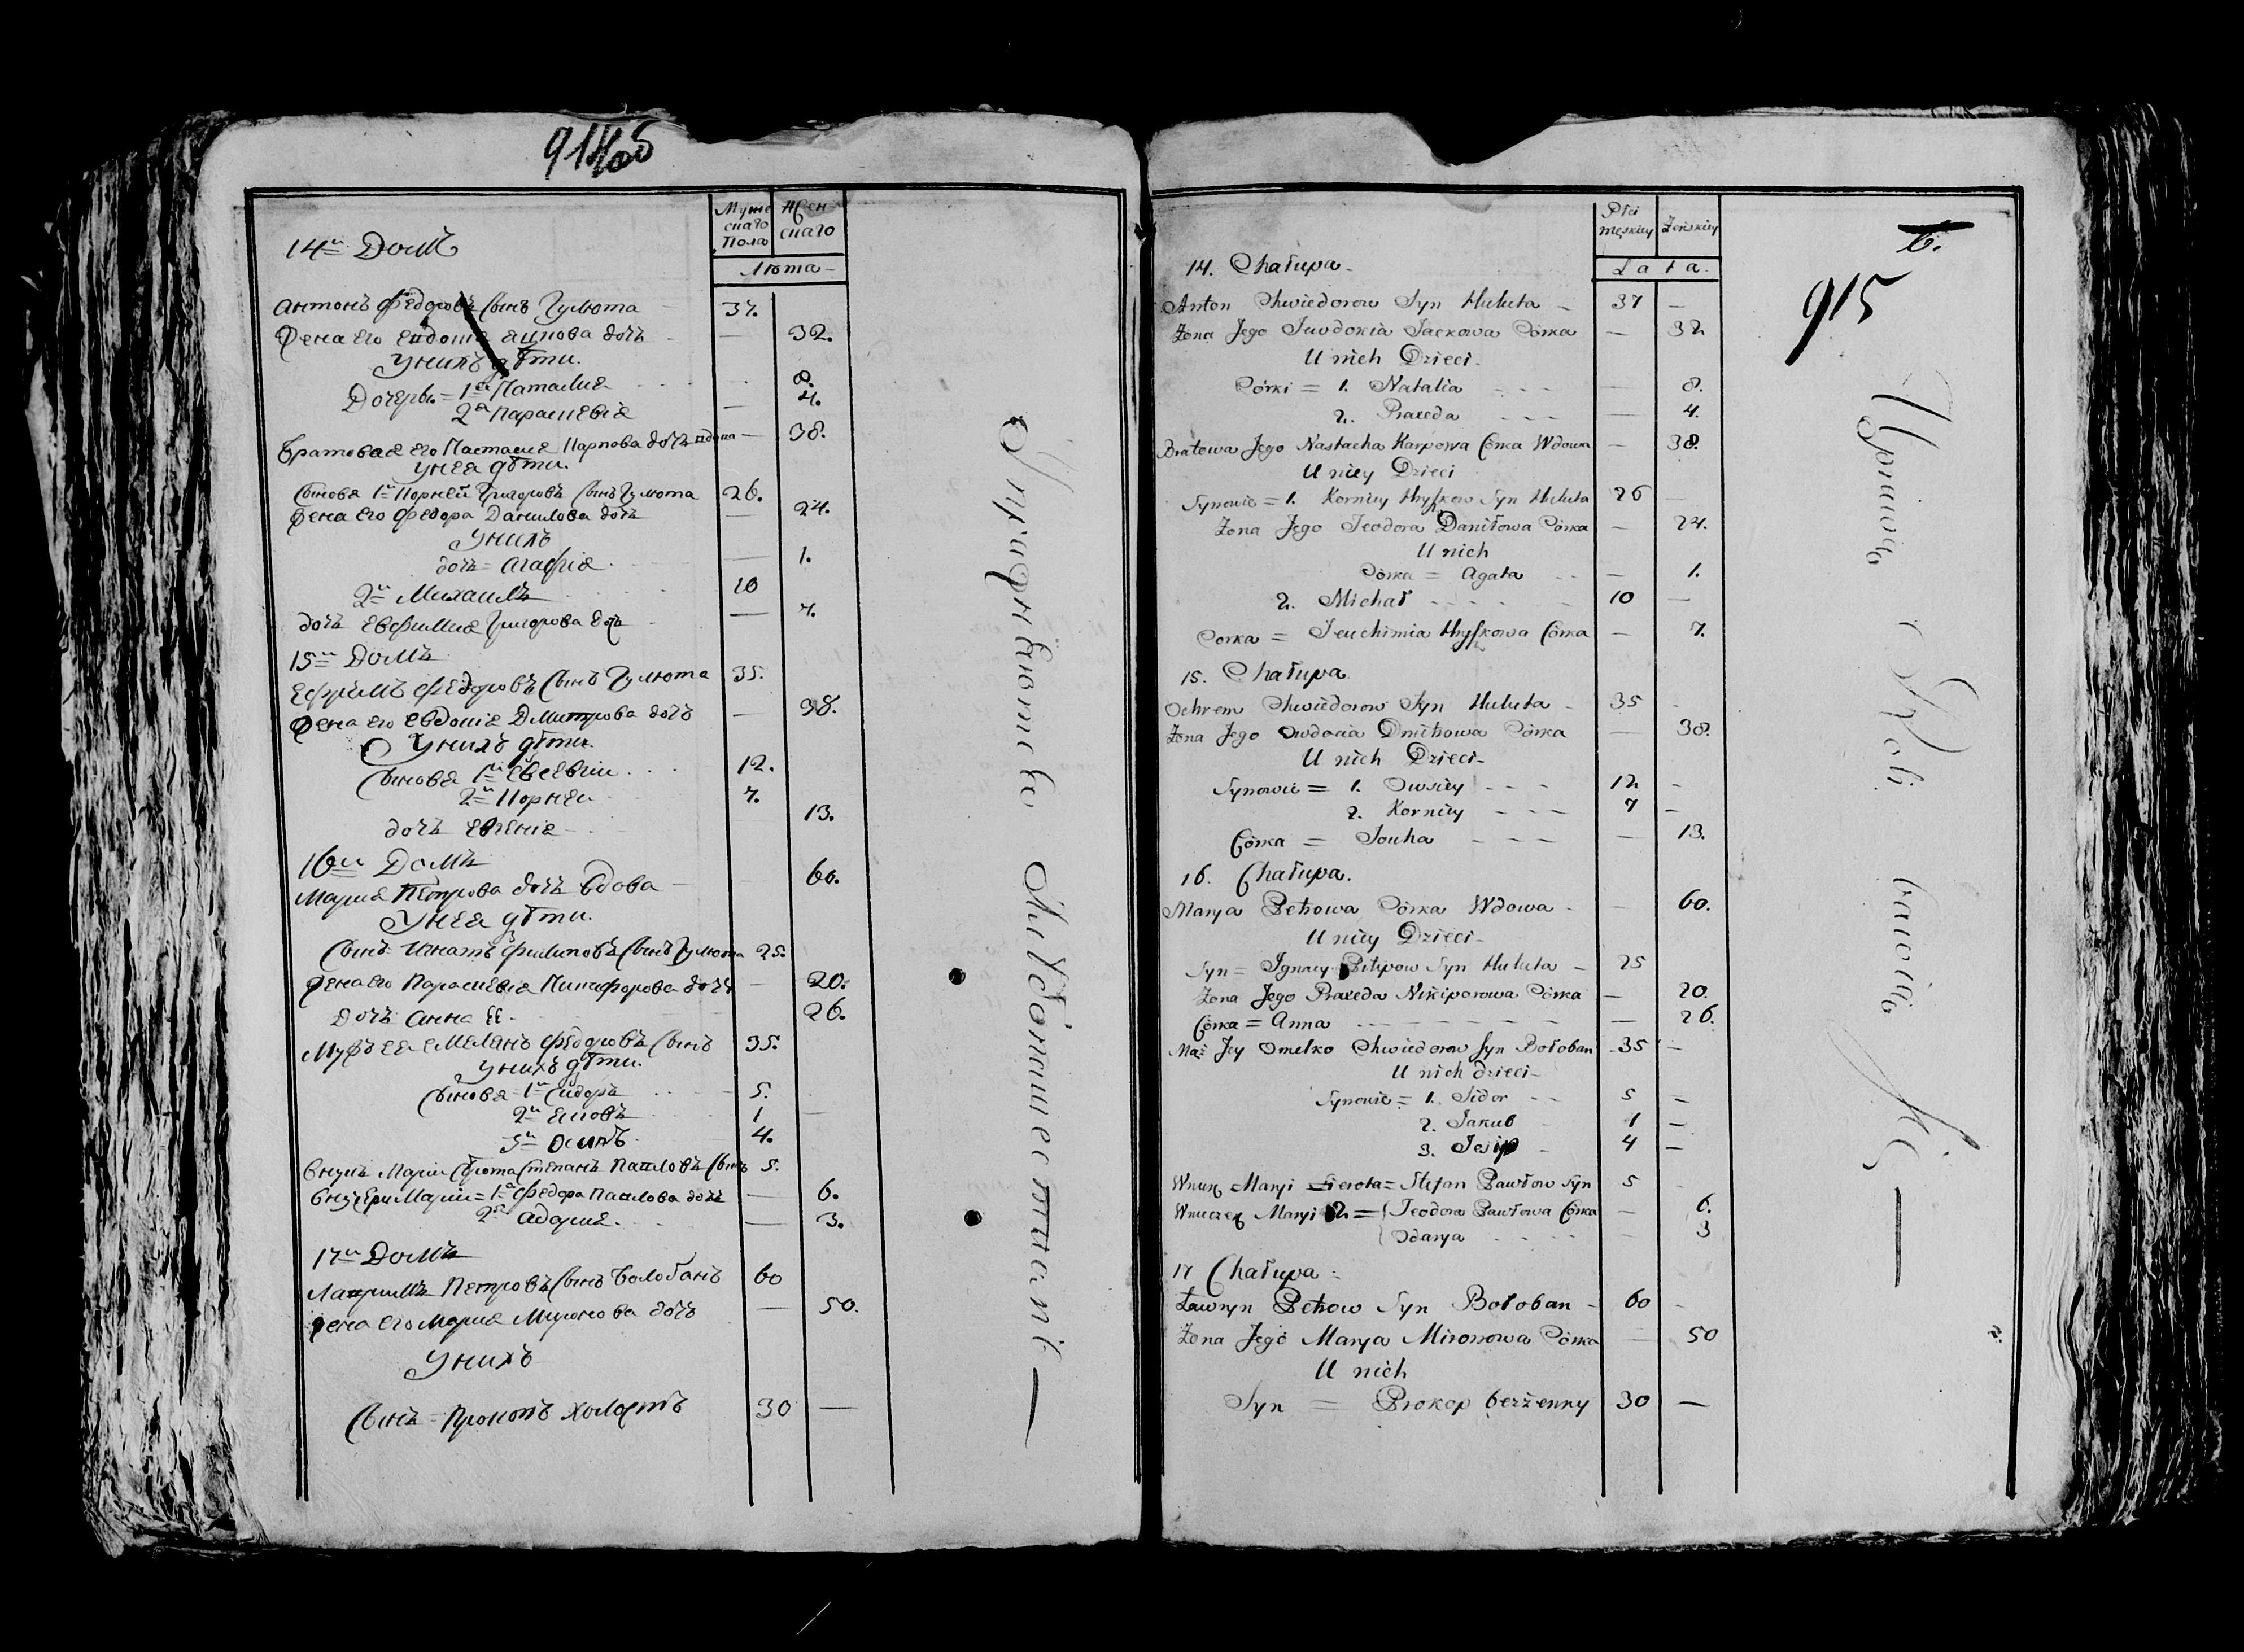 914об
Мужескаго Пола
Женскаго
Лѣта
14й Домъ
Антонъ Федоровъ Сынъ Гулюта 37.
Жена Его Евдокія Яцкова дочь — 32.
У нихъ дѣти.
Дочеры = 1я Наталия 8.
2я Параскевія — 4.
Братовая Его Настасия Карпова дочь вдова — 38.
У нея дѣти.
Сыновя 1й Корнѣй Григоровъ Сынъ Гулюта 26.
Жена Его Федора Данилова дочь — 24.
У нихъ
дочь = Агафія — 1.
2й Михаилъ 10
дочь Евфимия Григорова дочь — 7.
15й Домъ
Ефримъ Федоровъ Сынъ Гулюта 35.
Жена Его Евдокія Дмитрова дочь — 38.
У нихъ дѣти.
Сыновя 1й Евсевии 12.
2й Корнеи 7.
дочь Евгенія 13.
16й Домъ
Мария Петрова дочь Вдова — 60.
У нея дѣти.
Сынъ Игнатъ Филиповъ Сынъ Гулюта 25.
Жена Его Параскевія Никифорова дочь — 20.
Дочь Анна Ее 26.
Мужъ Ея Емелянъ Федоровъ Сынъ 35.
У нихъ дѣти.
Сыновя 1й Сидоръ 5.
2й Яковъ 1 —
3й Осипъ 4.
Внукъ Марии Сирота Степанъ Павловъ Сынъ 5.
Внучери Марии = 1я Федора Павлова дочь — 6.
2я Адария — 3.
17й Домъ
Лавримъ Петровъ Сынъ Болобанъ 60
Жена Его Мария Миронова дочь — 50.
У нихъ
Сынъ = Прокопъ холостъ 30 —
915
6.
Płci męskiey
Zeńskiey
Lata.
14. Chałupa.
Anton Chwiedorow Syn Huluta — 37 —
Żona Jego Jewdokia Jackowa Córka — 32
U nich Dzieci.
Córki = 1. Natalia — 8.
2. Praxeda — 4.
Bratowa Jego Nastacha Karpowa Córka Wdowa — 38.
U niey Dzieci
Synowie = 1. Korniey Hryſkow Syn Huluta 26 —
Żona Jego Teodora Daniłowa Córka — 24.
U nich
Córka = Agata — 1.
2. Michał 10 —
Corka = Jeuchimia Hryſkowa Córka — 7.
15. Chałupa.
Ochrem Chwiedorow Syn Huluta 35 -
Żona Jego Owdocia Dmitrowa Córka — 38.
U nich Dzieci
Synowie = 1. Owsiey 12 -
2. Korniey 7 —
Córka = Jouha — 13.
16. Chałupa.
Marya Petrowa Córka Wdowa — 60.
U niey Dzieci
Syn = Ignacy Pilipow Syn Huluta 25
Żona Jego Praxeda Nikiporowa Córka — 20.
Córka = Anna — 26.
Maż Jey Omelko Chwiedorow Syn Bołoban 35 —
U nich dzieci
Synowie = 1. Sidor 5 —
2. Jakub 1 —
3. Josip 4 —
Wnuk Maryi Sierota = Stefan Pawłow Syn 5 -
Wnuczek Maryi 2. = Teodora Pawłowa Córka — 6.
Odarya — 3
17 Chałupa:
Ławryn Petrow Syn Bołoban 60 -
Żona Jego Marya Mironowa Córka — 50
U nich
Syn = Prokop bezżenny 30 —